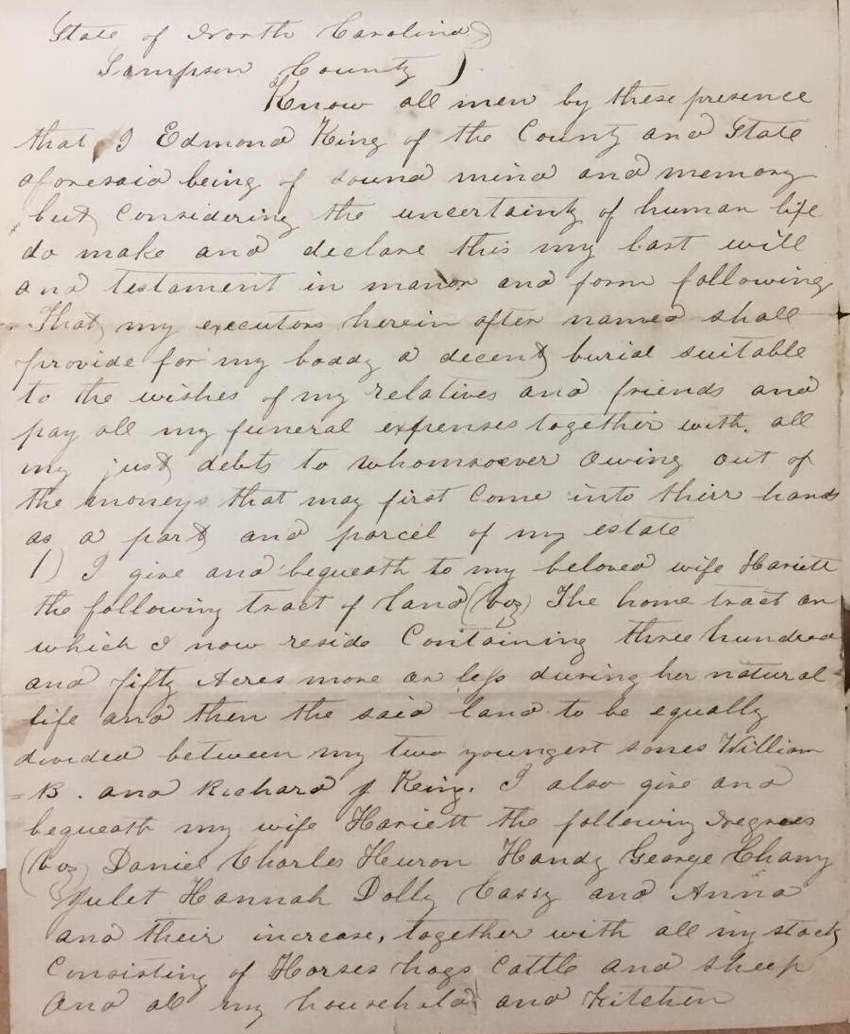 State of North Carolina)
Sampson County ).
Know all men by these presence
that I Edmond King of the County and State
aforesaid being of sound mind and memory
but Considering the uncertainty of human life
do make and declare this my last will
and testament in manor and form following
That my executors herein after named shall
provide for my boddy a decent burial suitable
to the wishes of my relatives and friends and
pay all my funeral expenses together with. all
my just debts to whomsoever owing out of
the moneys that may first Come into thirr hands
as a part and parcel of my estate
1) I give and bequeath to my beloved wife Hariett
the following tract of land (viz) The home tract on
which I now reside Containing three hundred
and fifty Acres more or less during her natural
life and then the said land to be equally
divided between my two youngest sones William
= B. and Richard J King. I also give and
bequeath my wife Hariett the following negroes
(viz) Daniel Charles Huron Handy George Chany
Julet Hannah Dolly Cassy and Anna
and their increase, together with all my stock
Consisting of Horses hogs Cattle and sheep
And all my household and Kitchen